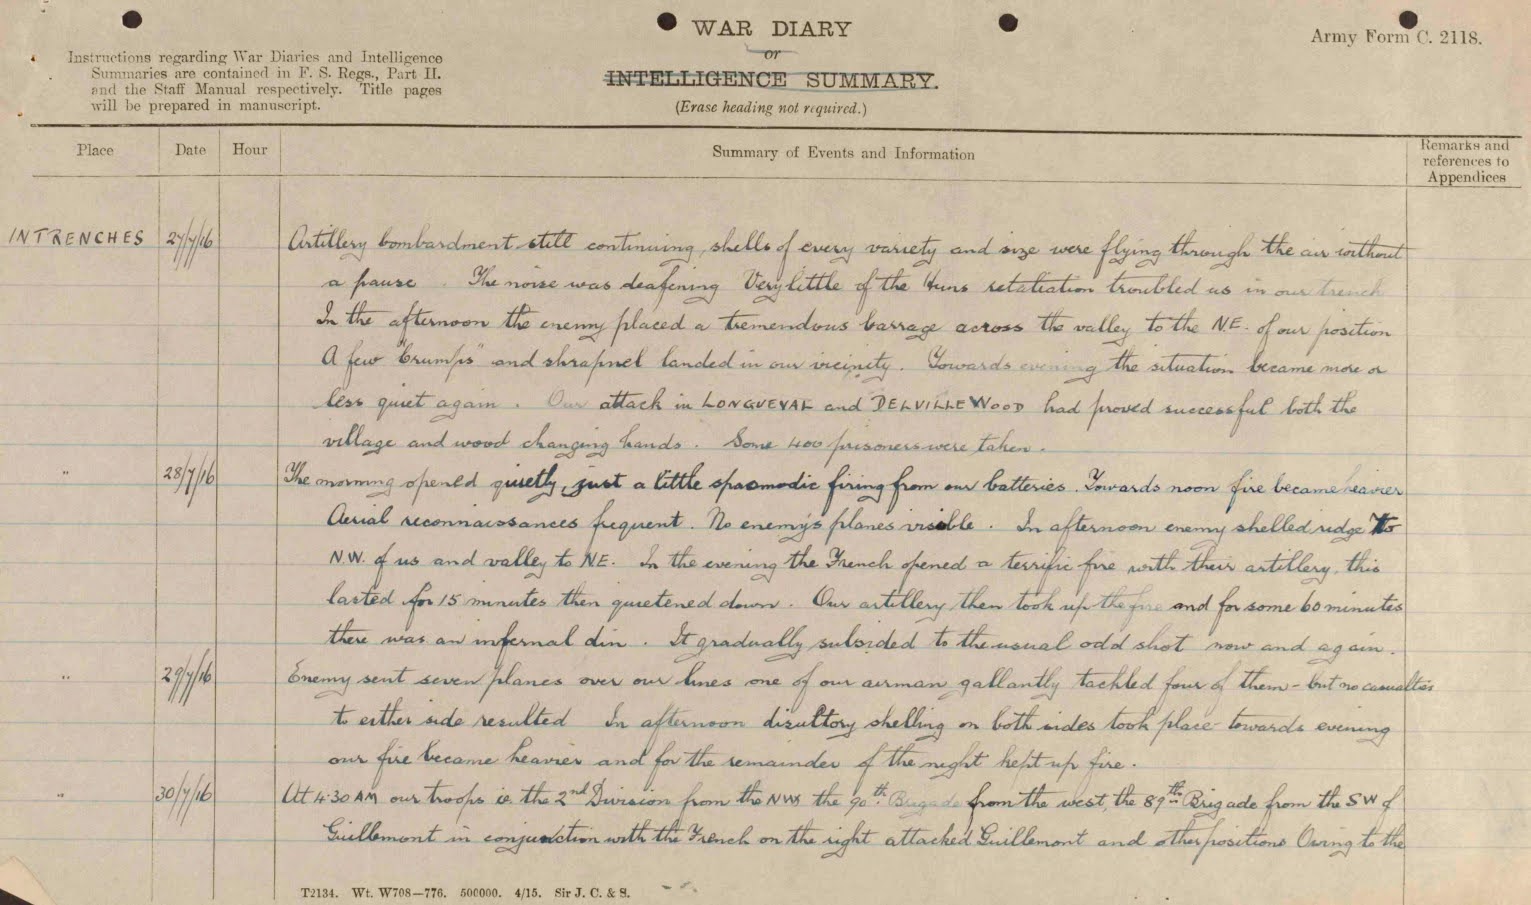 WAR DIARY
or
INTELLIGENCE SUMMARY.
(Erase heading not required.)
Army Form C. 2118.
Instructions regarding War Diaries and Intelligence
Summaries are contained in F. S. Regs., Part II.
and the Staff Manual respectively. Title pages
will be prepared in manuscript.
Place Date Hour Summary of Events and Information Remarks and
references to
Appendices
IN TRENCHES 27/7/16 Artillery bombardment still continuing, shells of every variety and size were flying through the air without
a pause. The noise was deafening Very little of the Huns retaliation troubled us in our trench
In the afternoon the enemy placed a tremendous barrage across the valley to the N.E. of our position
A few "Crumps" and shrapnel landed in our vicinity. Towards evening the situation became more or
less quiet again. Our attack in LONGUEVAL and DELVILLE WOOD had proved successful both the
village and wood changing hands. Some 400 prisoners were taken.
" 28/7/16 The morning opened quietly, just a little spasmodic firing from our batteries. Towards noon fire became heavier
Aerial reconnaissances frequent. No enemy's planes visible. In afternoon enemy shelled ridge to
N.W. of us and valley to NE. In the evening the French opened a terrific fire with their artillery, this
lasted for 15 minutes then quietened down. Our artillery then took up the fire and for some 60 minutes
there was an infernal din. It gradually subsided to the usual odd shot now and again.
" 29/7/16 Enemy sent seven planes over our lines one of our airman gallantly tackled four of them - but no casualties
to either side resulted In afternoon disultory shelling on both sides took place towards evening
our fire became heavier and for the remainder of the night kept up fire.
" 30/7/16 At 4.30 AM our troops ie. the 2nd Division from the NW the 90th Brigade from the west, the 89th Brigade from the SW of
Guillemont in conjunction with the French on the right attacked Guillemont and other positions Owing to the
T2134. Wt. W708—776. 500000. 4/15. Sir J. C. & S.